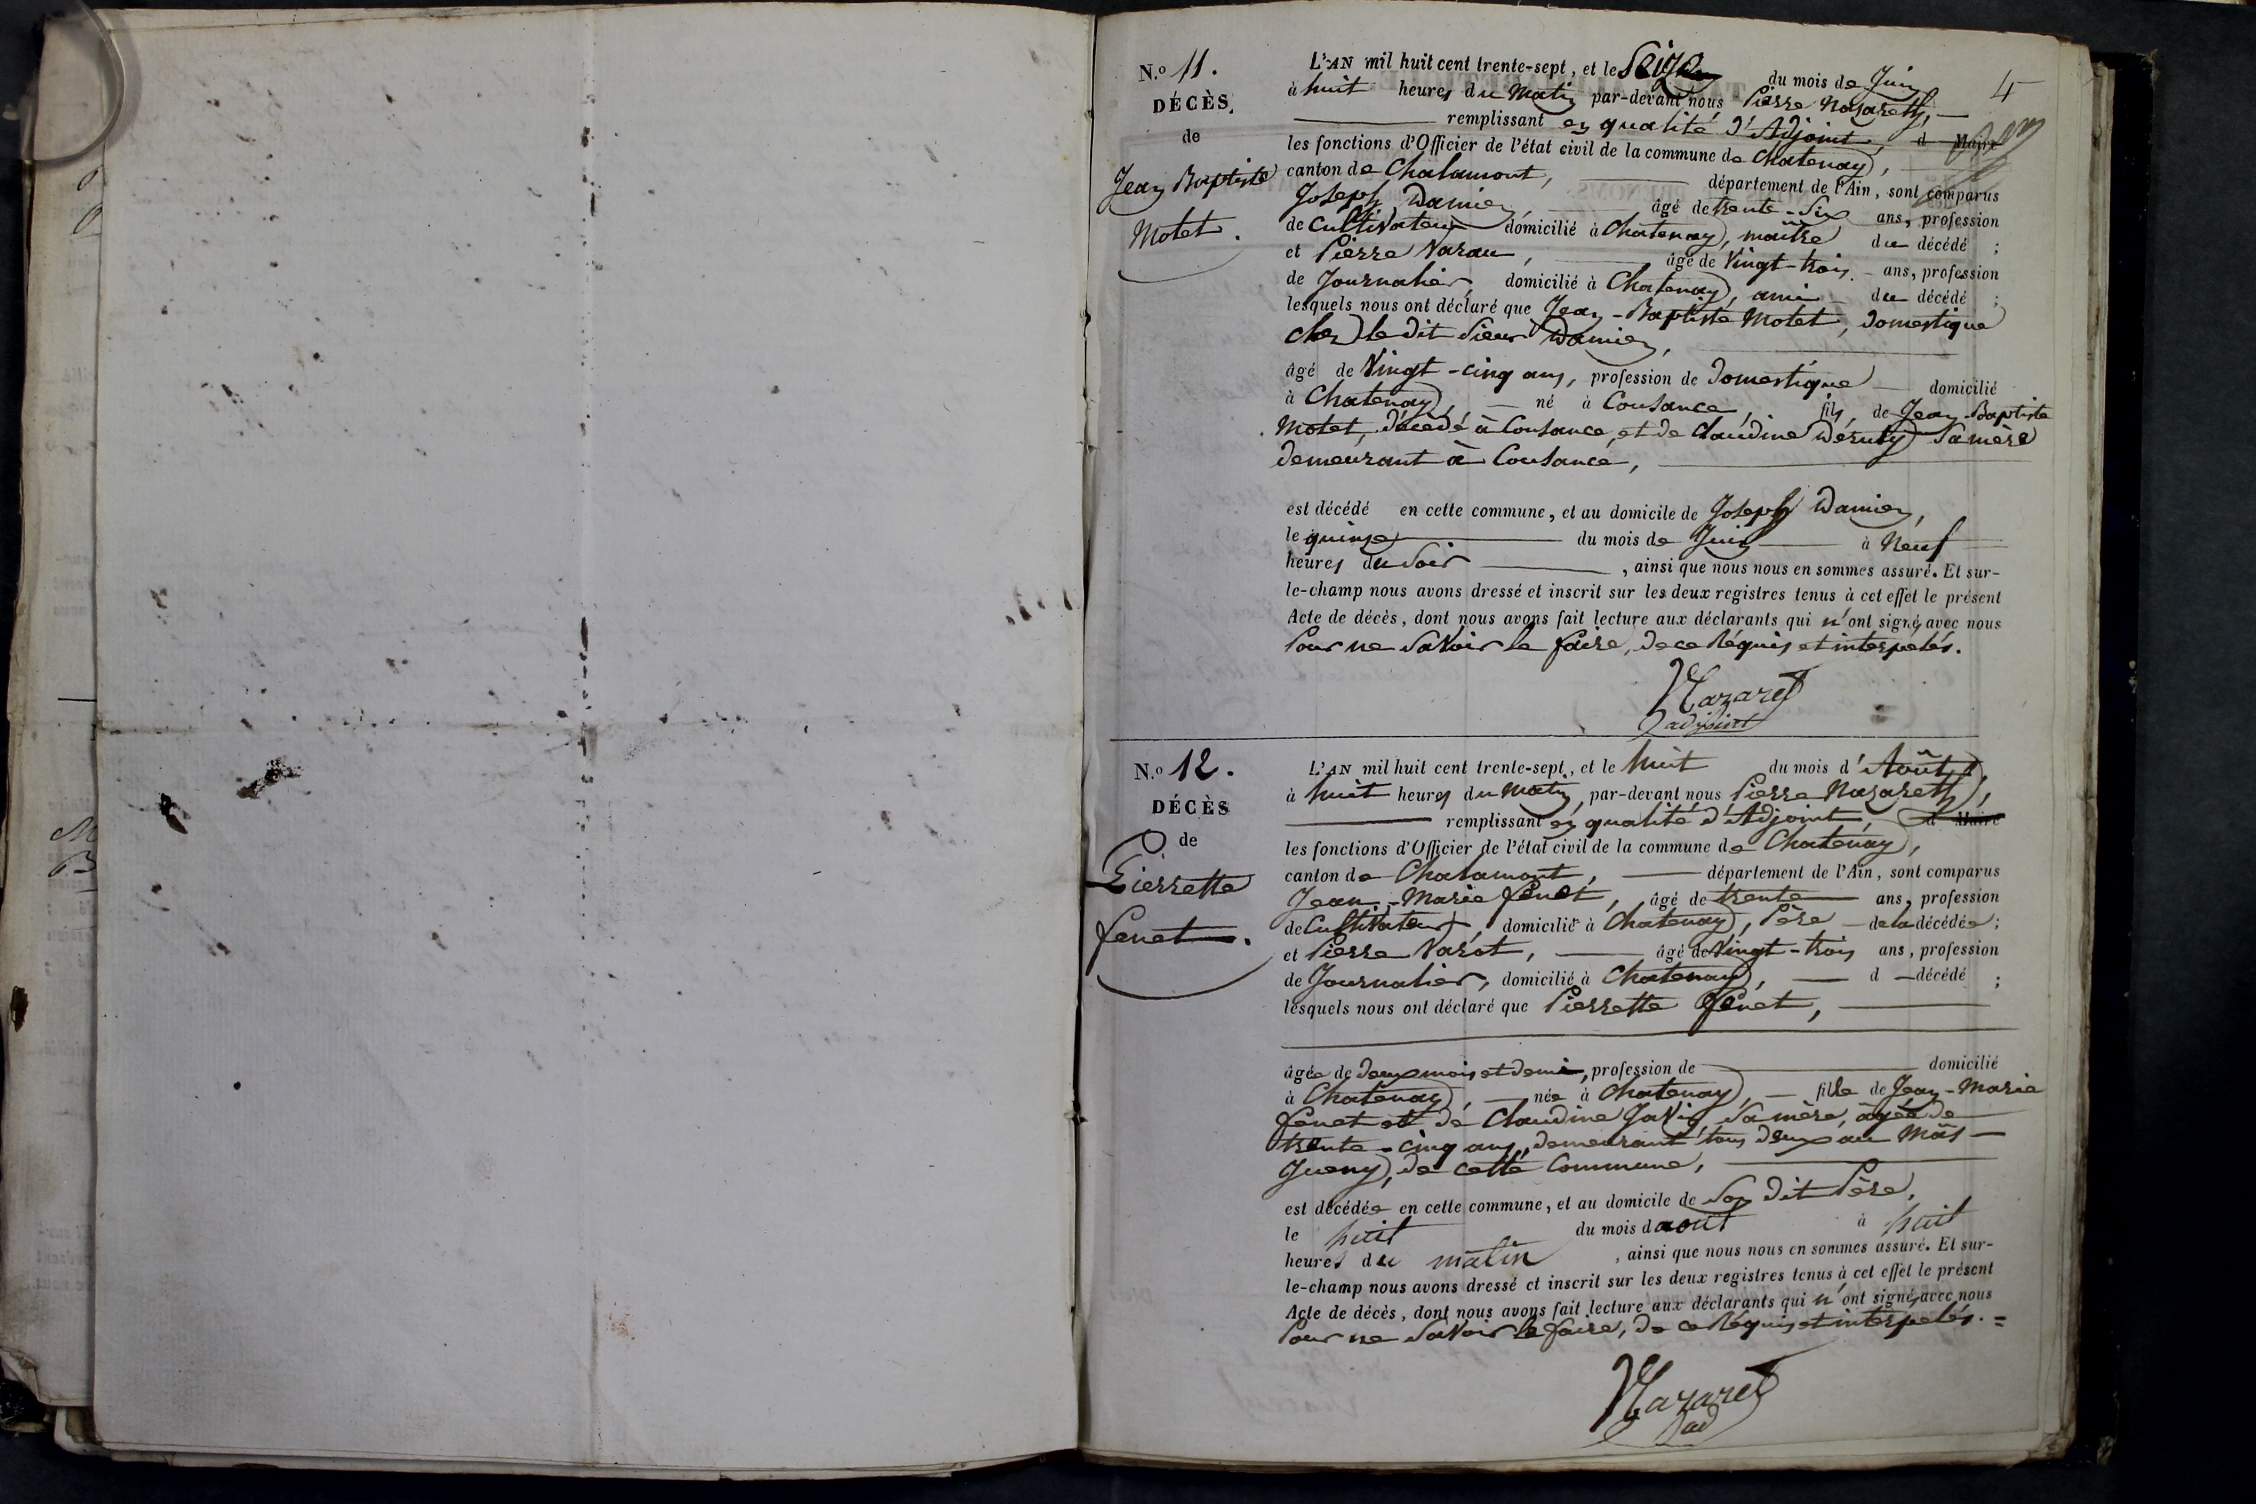 4
N.º 11.
DÉCÈS
de
Jean Baptiste
Motet.
L'AN mil huit cent trente-sept, et le Seize du mois de Juin
à huit heures du Matin par-devant nous Pierre Nazareth,
remplissant en qualité d'Adjoint, d Maire
les fonctions d'Officier de l'état civil de la commune de Chatenay,
canton de Chalamont, département de l'Ain, sont comparus
Joseph Damien, âgé de trente-Six ans, profession
de Cultivateur domicilié à Chatenay, maître du décédé ;
et Pierre Varau, âgé de Vingt-trois ans, profession
de Journalier, domicilié à Chatenay, ami du décédé ;
lesquels nous ont déclaré que Jean-Baptiste Motet, domestique
chez le dit Sieur Damien,
âgé de Vingt-cinq ans, profession de domestique domicilié
à Chatenay, né à Cousance, fils de Jean Baptiste
Motet, décédé à Cousance, et de Claudine Sa mère
demeurant à Cousance,
est décédé en cette commune, et au domicile de Joseph Damien,
le quinze du mois de Juin à Neuf
heures du Soir, ainsi que nous nous en sommes assuré. Et sur-
le-champ nous avons dressé et inscrit sur les deux registres tenus à cet effet le présent
Acte de décès, dont nous avons fait lecture aux déclarants qui n'ont signé avec nous
Pour ne Savoir le faire, de ce Réquis et interpelés.
Nazaret
adjoint
N.º 12.
DÉCÈS
de
Pierrette
fenet.
L'AN mil huit cent trente-sept, et le huit du mois d'Août,
à huit heures du Matin, par-devant nous Pierre Nazareth,
remplissant en qualité d'Adjoint, d Maire
les fonctions d'Officier de l'état civil de la commune de Chatenay,
canton de Chalamont, département de l'Ain, sont comparus
Jean-Marie fenet, âgé de trente ans, profession
de Cultivateur, domicilié à Chatenay, Père de la décédée ;
et Pierre Varot, âgé de Vingt-trois ans, profession
de Journalier, domicilié à Chatenay, d décédé ;
lesquels nous ont déclaré que Pierrette fenet,
âgée de deux mois et demi, profession de domicilié
à Chatenay, née à Chatenay, fille de Jean-Marie
fenet et de Claudine Sa mère, âgée de
trente-cinq ans, demeurant tous deux au Mas
Jueny, de cette Commune,
est décédée en cette commune, et au domicile de Son dit Père,
le huit du mois d août à huit
heures du matin, ainsi que nous nous en sommes assuré. Et sur-
le-champ nous avons dressé et inscrit sur les deux registres tenus à cet effet le présent
Acte de décès, dont nous avons fait lecture aux déclarants qui n'ont signé avec nous
Pour ne Savoir le faire, de ce Réquis et interpelés. =
Nazaret
ad